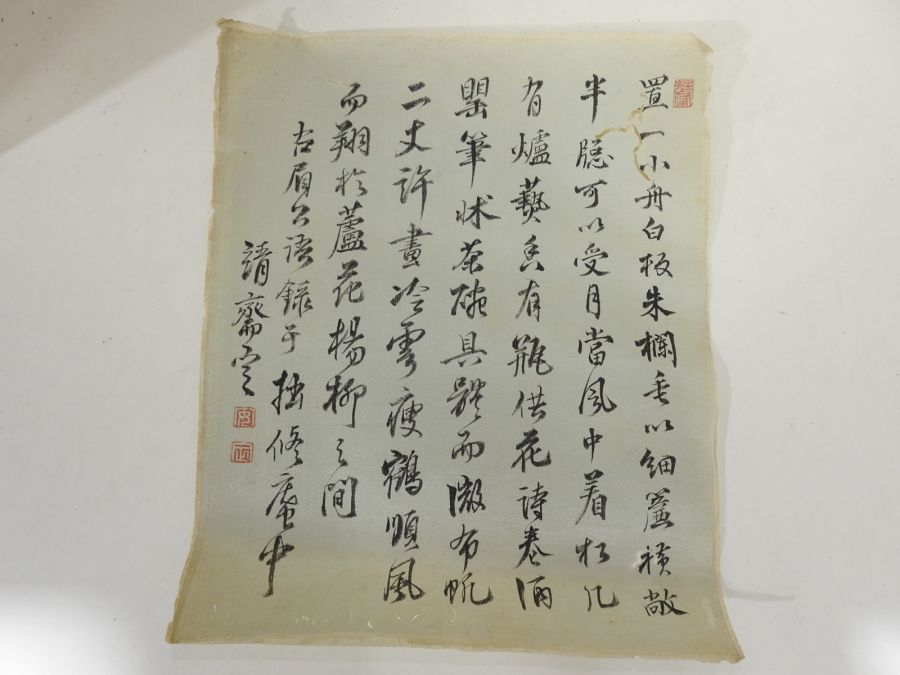 置一小舟白板朱欄垂以細簾横敞
半隱可以受月當風中着松几
有爐藝香有瓶供花詩卷酒
罌筆牀茶碗具體而微布帆
二丈許畫冷雲瘦鶴順風
而翔於蘆花楊柳之間
右眉公語錄于拙修庵中
靖齋